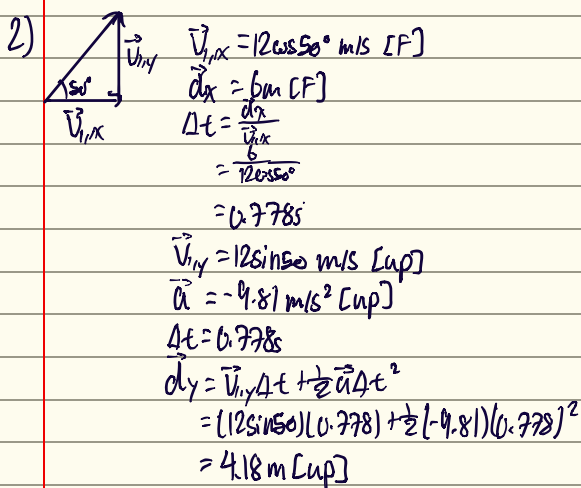 2)
V⃗₁,y
50°
V⃗₁,x
V⃗₁,x = 12cos50° m/s [F]
d⃗x = 6m [F]
Δt = d⃗x / V⃗₁,x
= 6 / 12cos50°
= 0.778s
V⃗₁,y = 12sin50 m/s [up]
a⃗ = -9.81 m/s² [up]
Δt = 0.778s
d⃗y = V⃗₁,yΔt + ½a⃗Δt²
= (12sin50)(0.778) + ½(-9.81)(0.778)²
= 4.18 m [up]